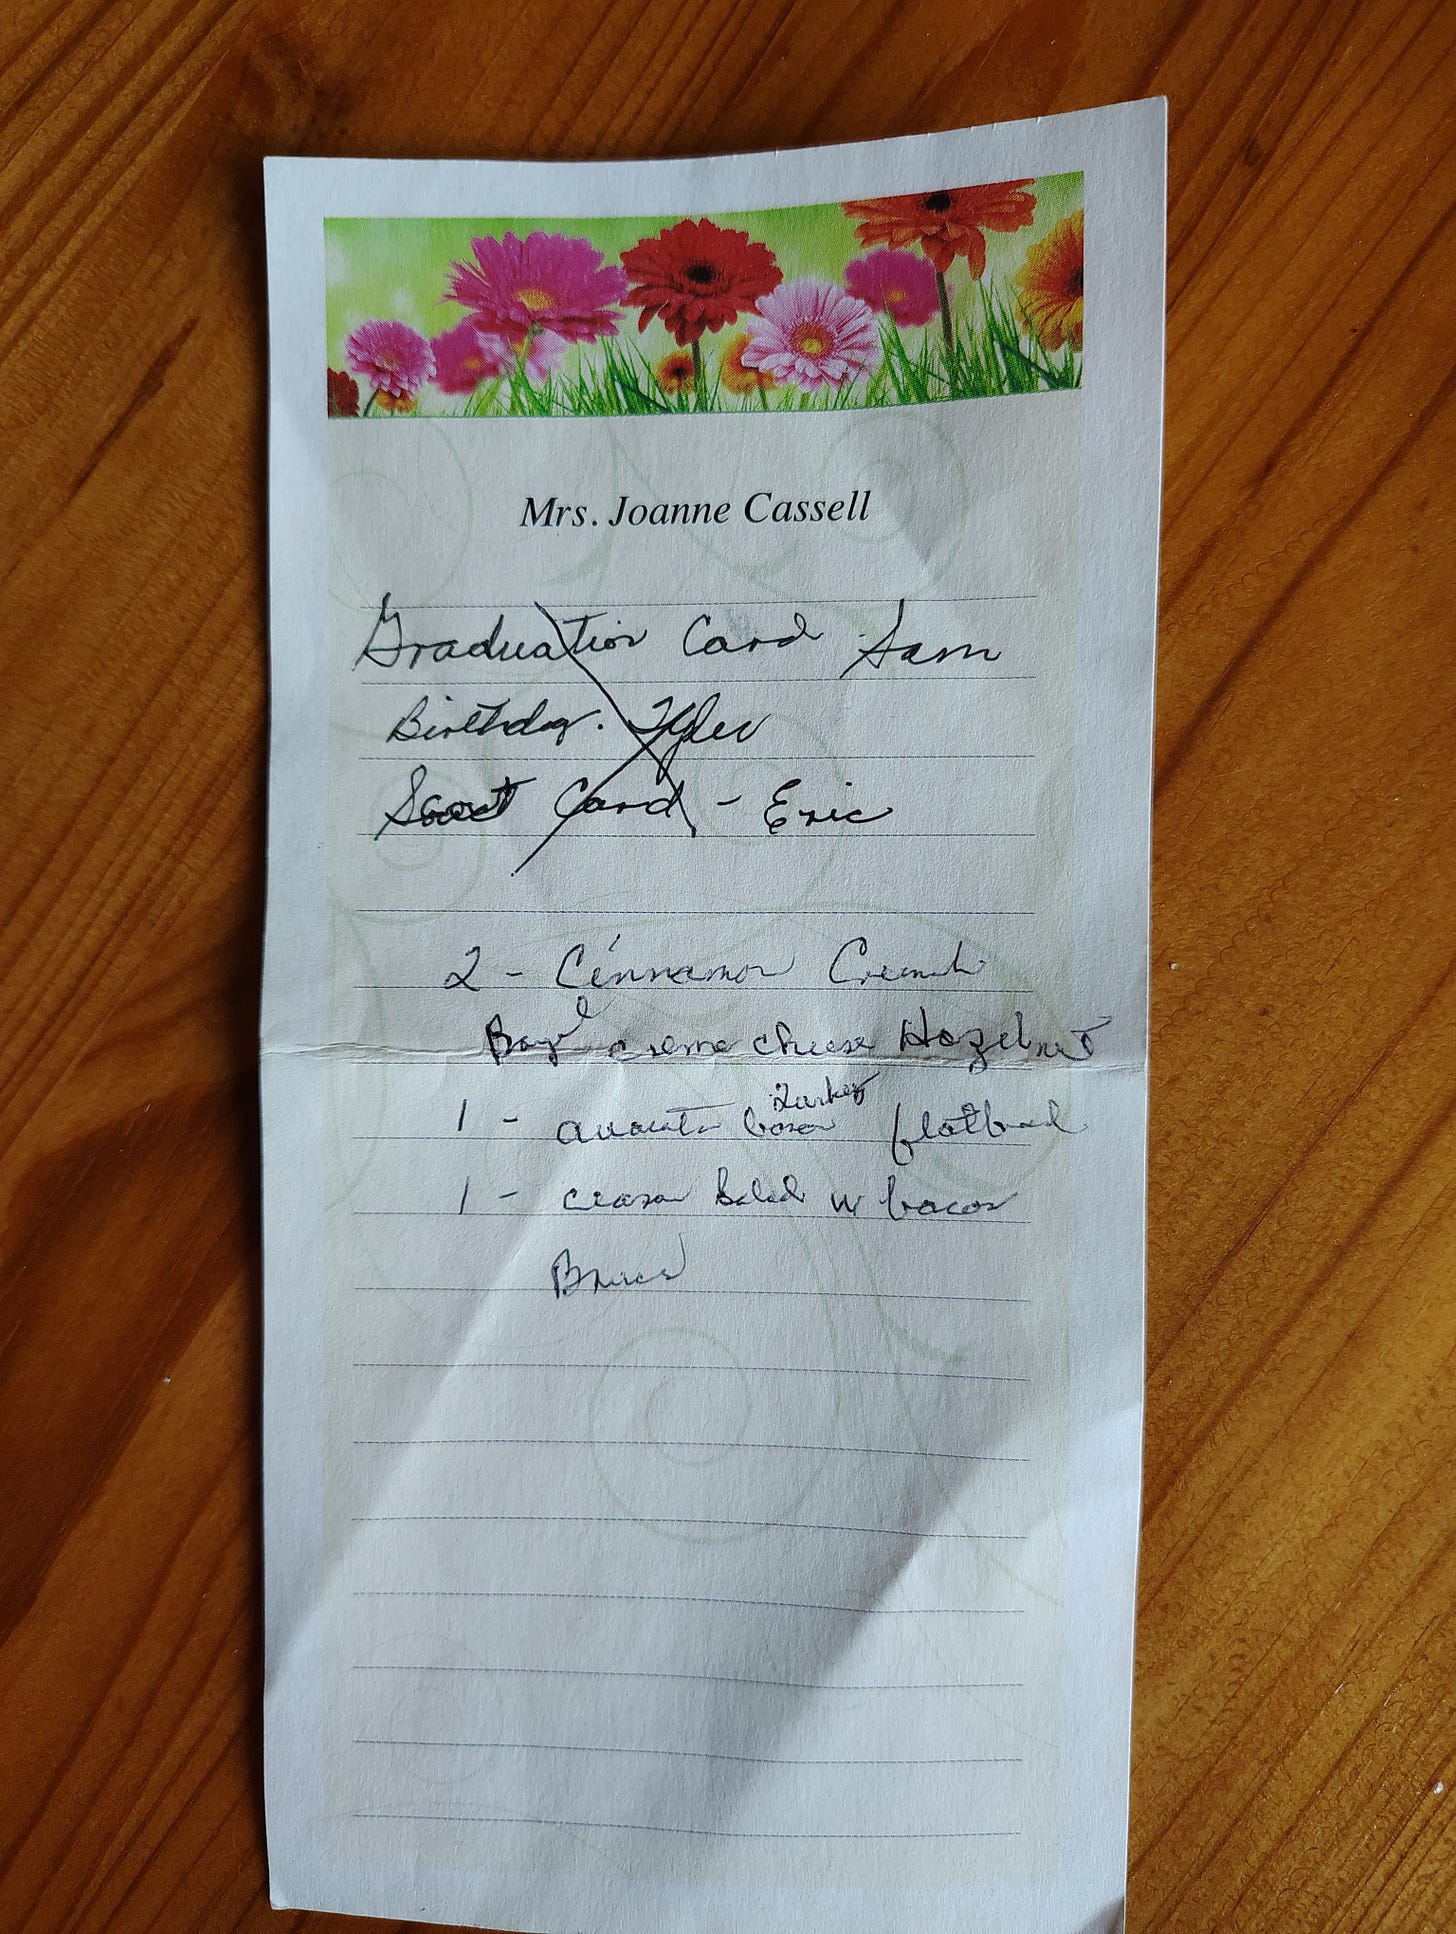 Mrs. Joanne Cassell
Graduation Card Sam
Birthday. Tyler
Scout Card - Eric
2 - Cinnamon Crunch
Bagel creme cheese Hazelnut
Turkey
1 - bacon flatbread
1 - Salad w bacon
Bruce